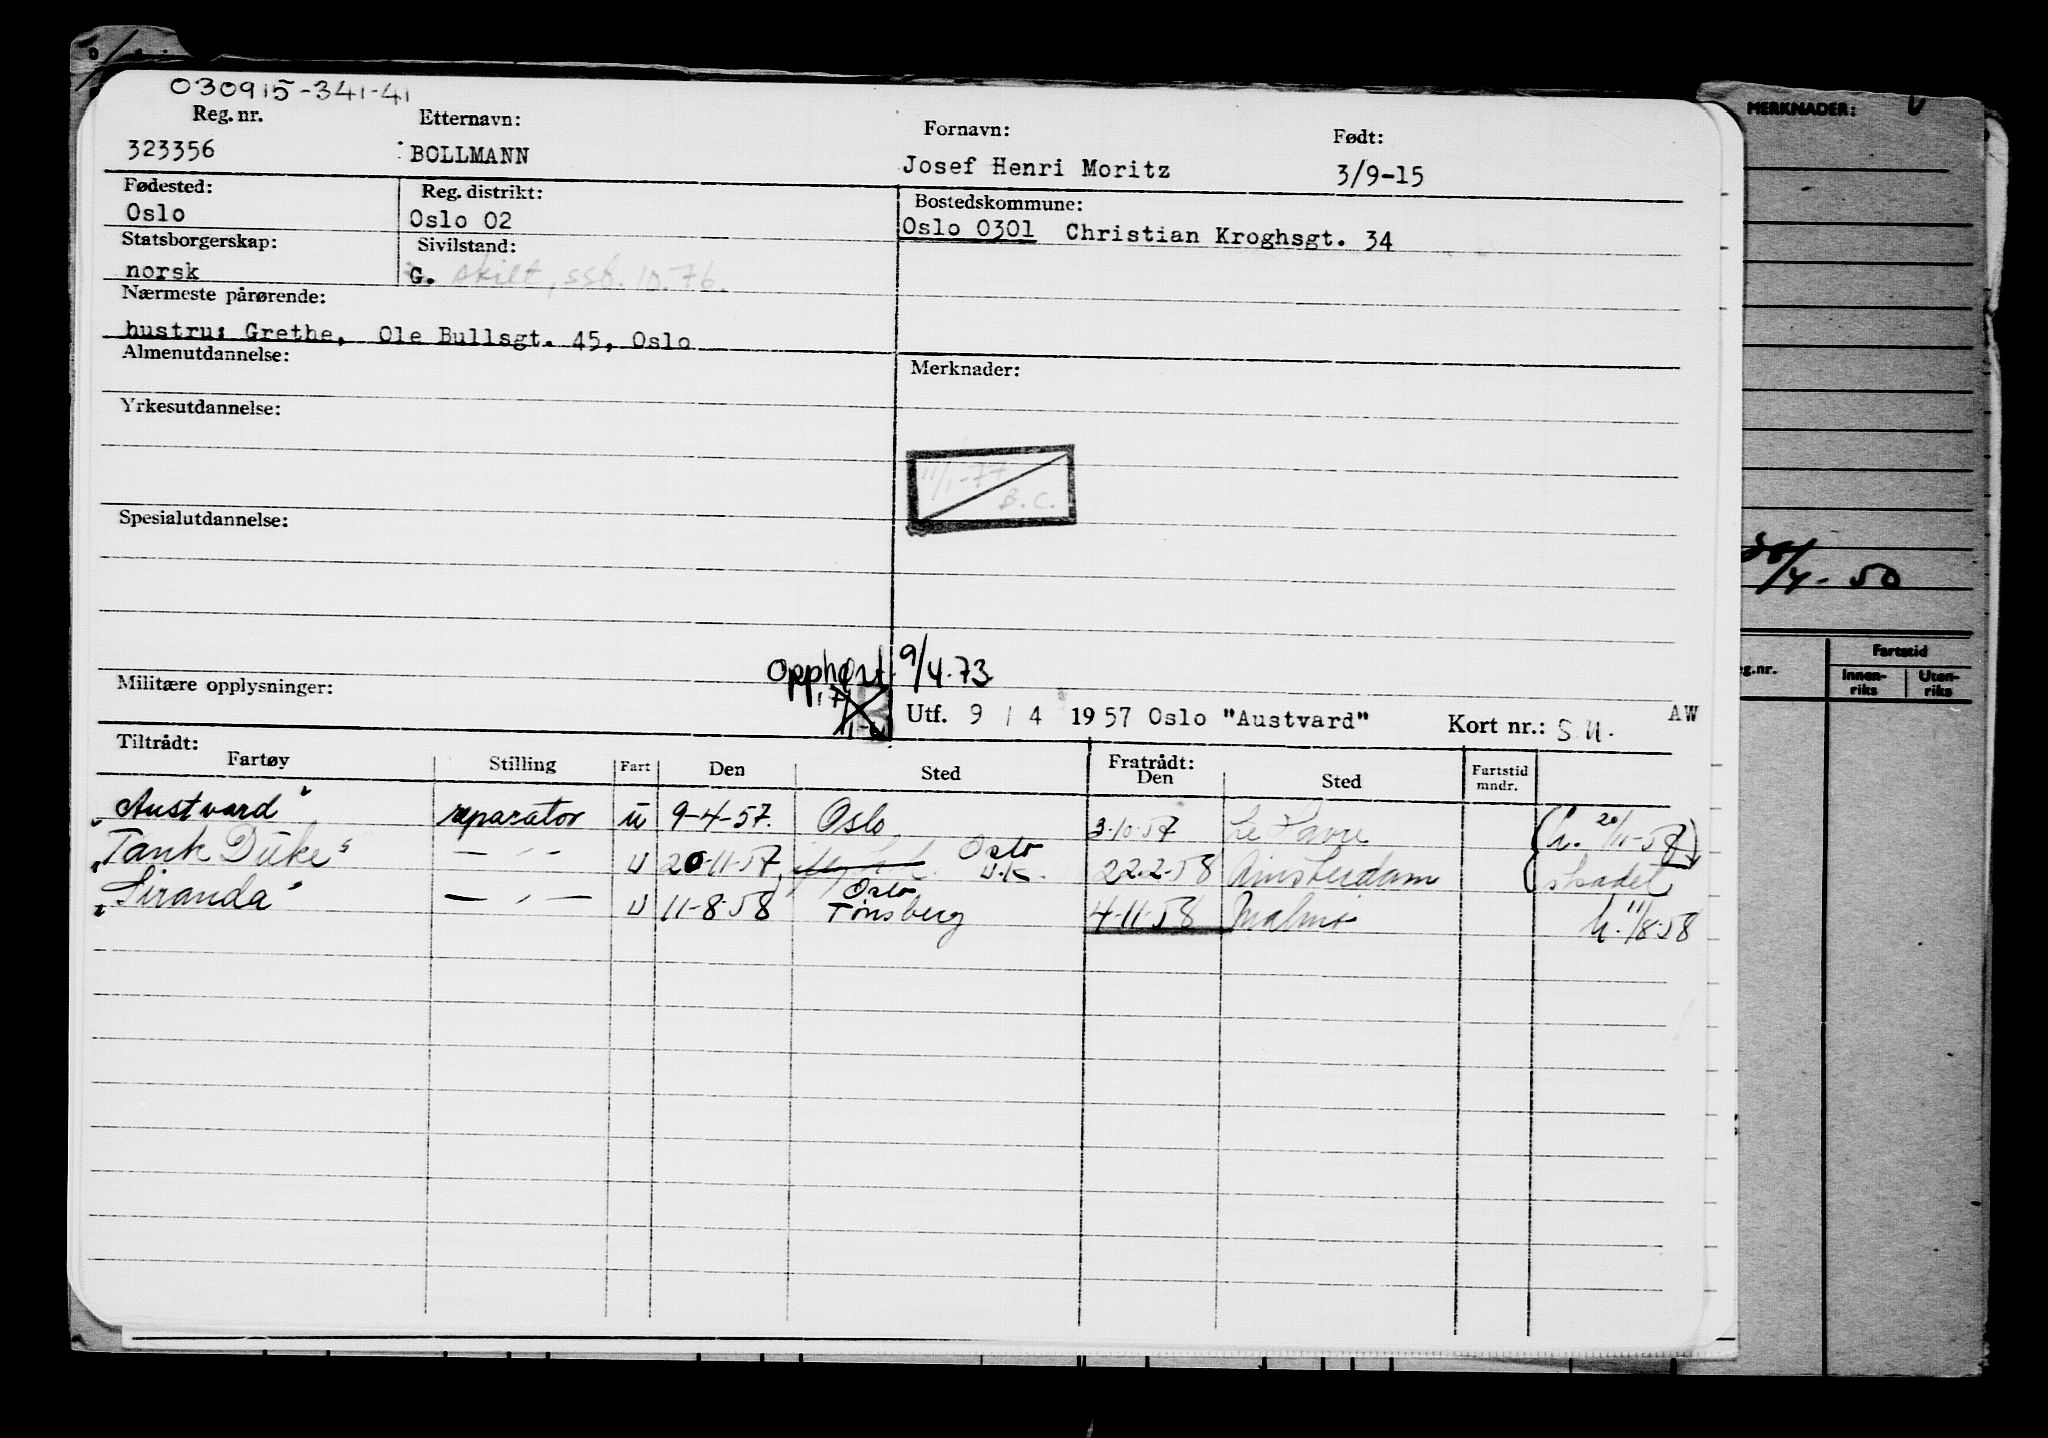 030915-341-41
Reg. nr. Etternavn: Fornavn: Født:
323356 BOLLMANN Josef Henri Moritz 3/9-15
Fødested: Reg. distrikt: Bostedskommune:
Oslo Oslo 02 Oslo 0301 Christian Kroghsgt. 34
Statsborgerskap: Sivilstand:
norsk G. skilt, ssb. 10.76.
Nærmeste pårørende:
hustru: Grethe, Ole Bullsgt. 45, Oslo
Almenutdannelse: Merknader:
Yrkesutdannelse:
11/1-77
B.C.
Spesialutdannelse:
Opphørt 9/4.73
Militære opplysninger:
Utf. 9 / 4 1957 Oslo "Austvard" Kort nr.: S.U. AW
Tiltrådt: Fratrådt:
Fartøy Stilling Fart Den Sted Den Sted Fartstid mndr.
"Austvard" reparatør u 9-4-57. Oslo 3.10.57 Le Havre (h. 20/11-57)
"Tank Duke" — " — U 20-11-57 Oslo U.K. 22.2.58 Amsterdam skadet
"Siranda" — " — U 11-8-58 Oslo Tønsberg 4-11-58 Malmø h. 11/8.58
MERKNADER:
/4- 50
g.nr. Fartstid
Innen-riks Uten-riks